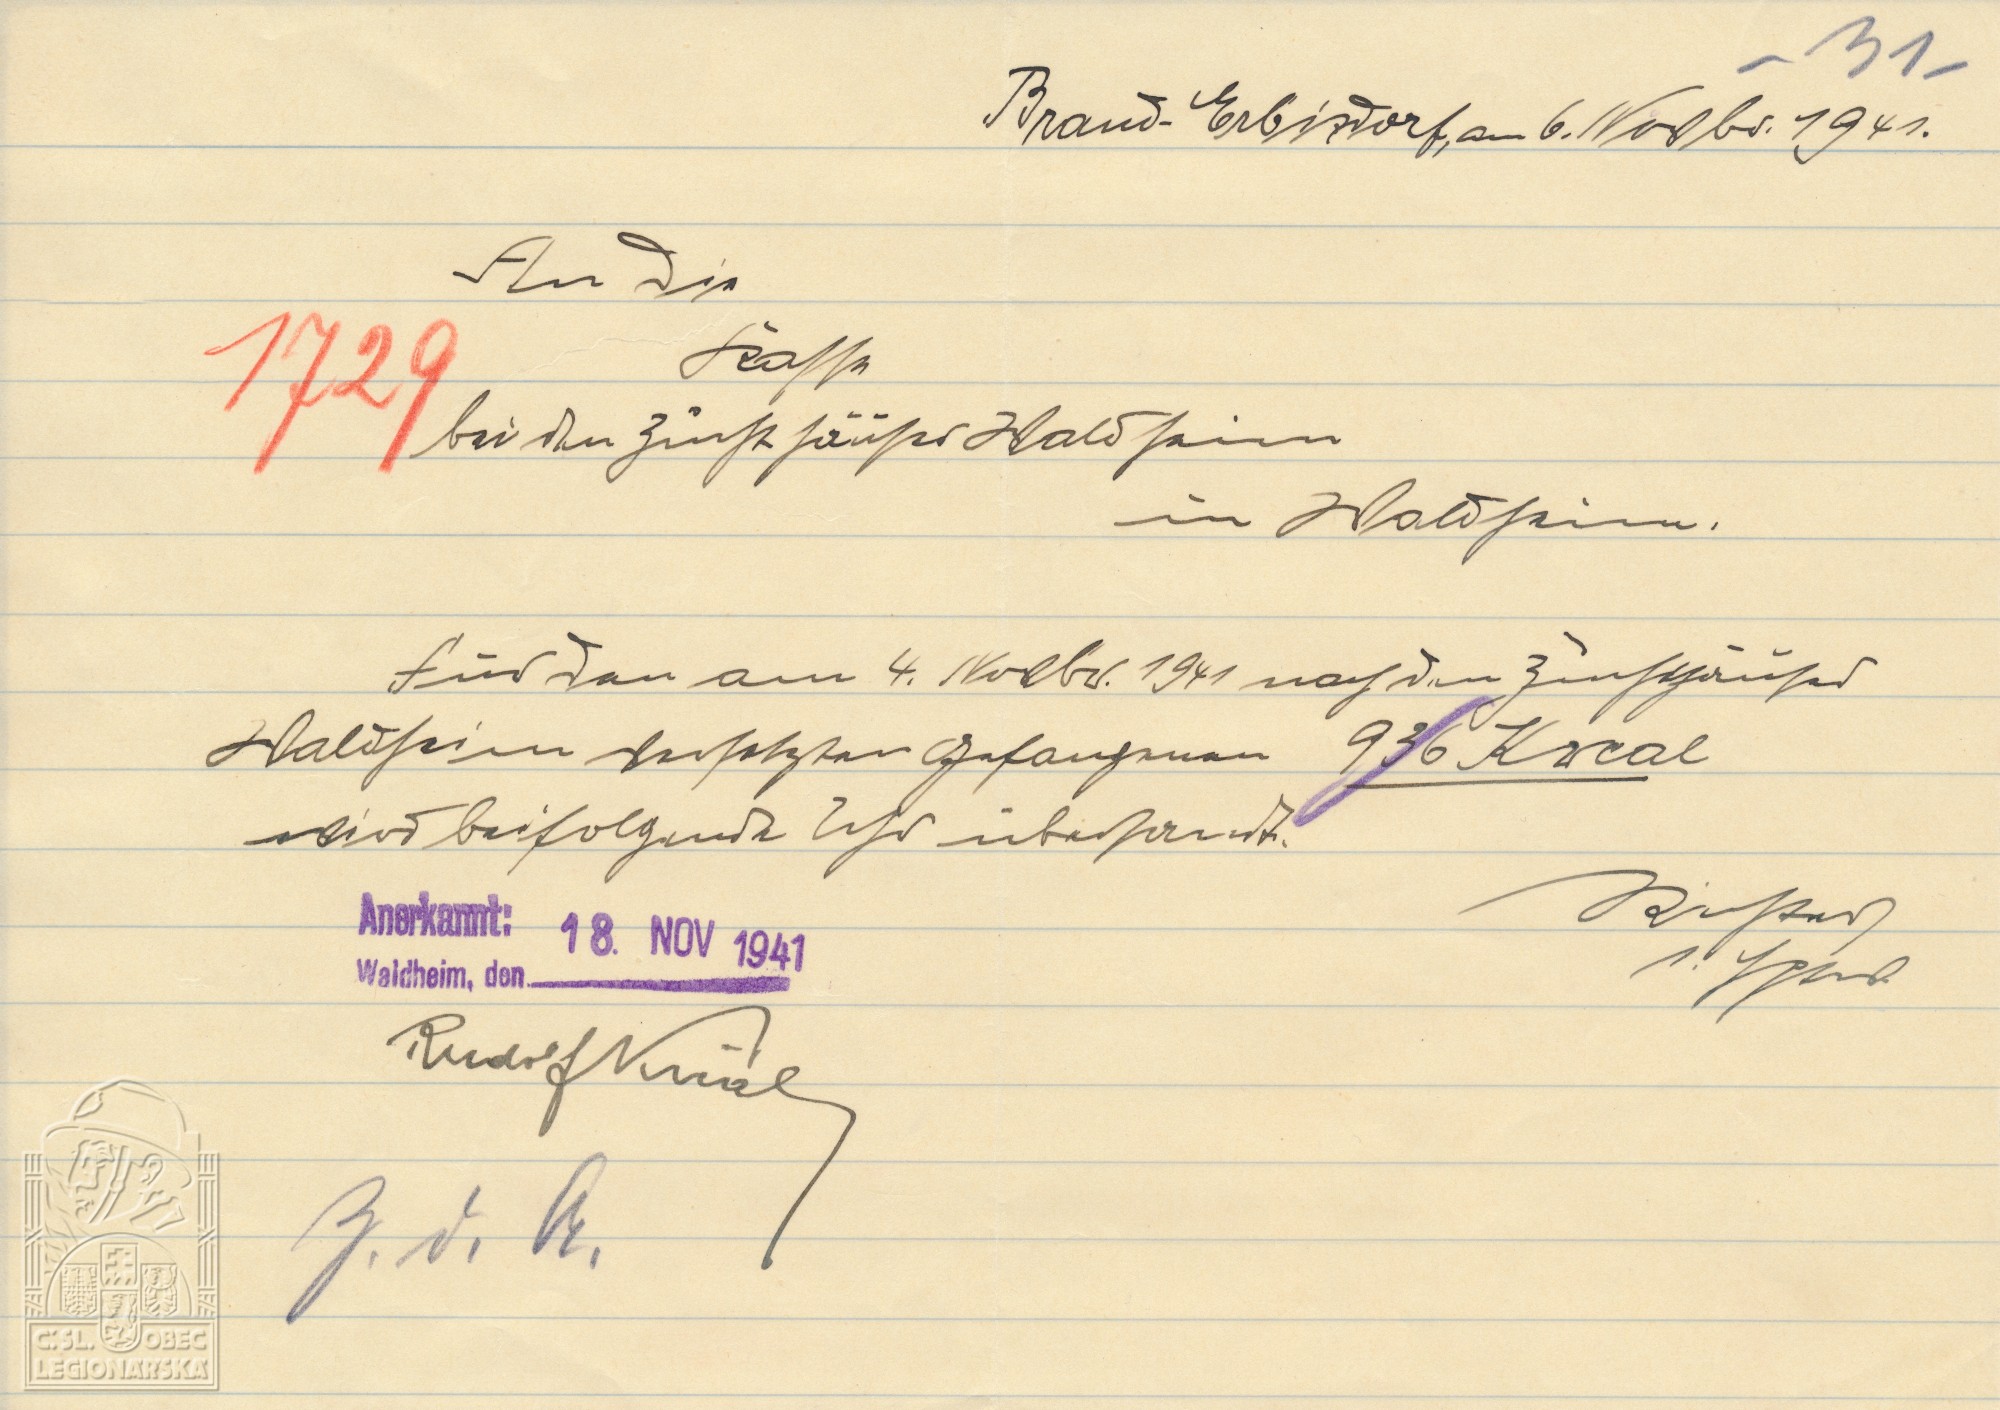 - 31 -
Brand-Erbisdorf, am 6. Novbr. 1941.
An die
Kasse
1729
bei dem Zuchthause Waldheim
in Waldheim.
Für den am 4. Novbr. 1941 nach dem Zuchthause
Waldheim versetzten Gefangenen 936 Krcal
wird beifolgende Uhr übersandt.
Anerkannt: 18. NOV 1941
Waldheim, den
Richter
Rudolf
Z. d. A.
Č. SL. OBEC
LEGIONÁŘSKÁ